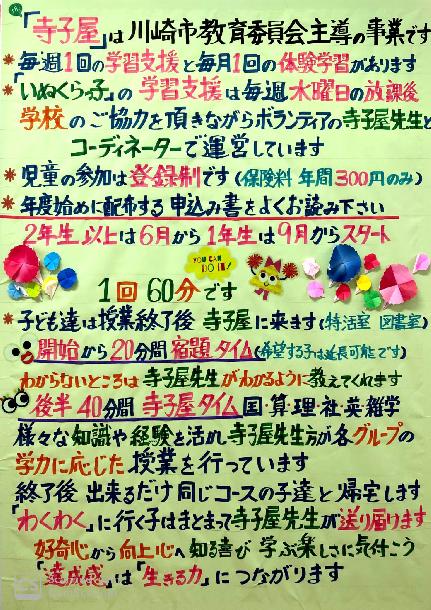 「寺子屋」は川崎市教育委員会主導の事業です
* 毎週1回の学習支援と毎月1回の体験学習があります
* 「いぬくらっ子」の学習支援は毎週水曜日の放課後
学校のご協力を頂きながらボランティアの寺子屋先生と
コーディネーターで運営しています
* 児童の参加は登録制です(保険料 年間300円のみ)
* 年度始めに配布する申込み書をよくお読み下さい
2年生以上は6月から1年生は9月からスタート
YOU CAN DO IT!
1回60分です
* 子ども達は授業終了後 寺子屋に来ます(特活室 図書室)
開始から20分間 宿題タイム(希望する子は延長可能です)
わからないところは寺子屋先生がわかるように教えてくれます
後半40分間 寺子屋タイム 国・算・理・社・英・雑学
様々な知識や経験を活かし寺子屋先生方が各グループの
学力に応じた授業を行っています
終了後 出来るだけ同じコースの子達と帰宅します
「わくわく」に行く子はまとまって寺子屋先生が送り届けます
好奇心から向上心へ 知る喜び 学ぶ楽しさに気付こう
「達成感」は「生きる力」につながります